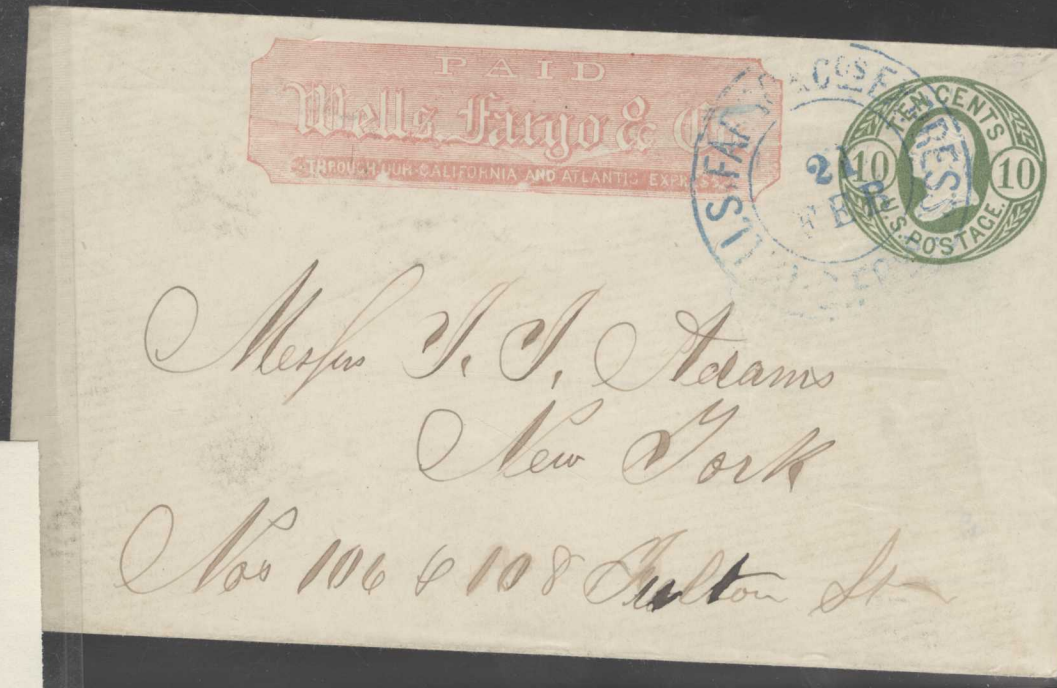 PAID
Wells, Fargo & Co
THROUGH OUR CALIFORNIA AND ATLANTIC EXPRESS
LLS, FAR
& COS E
RESS
21
FEB
TEN CENTS
10 10
U.S. POSTAGE.
Messrs J. J. Adams
New York
Nos 106 & 108 Fulton St